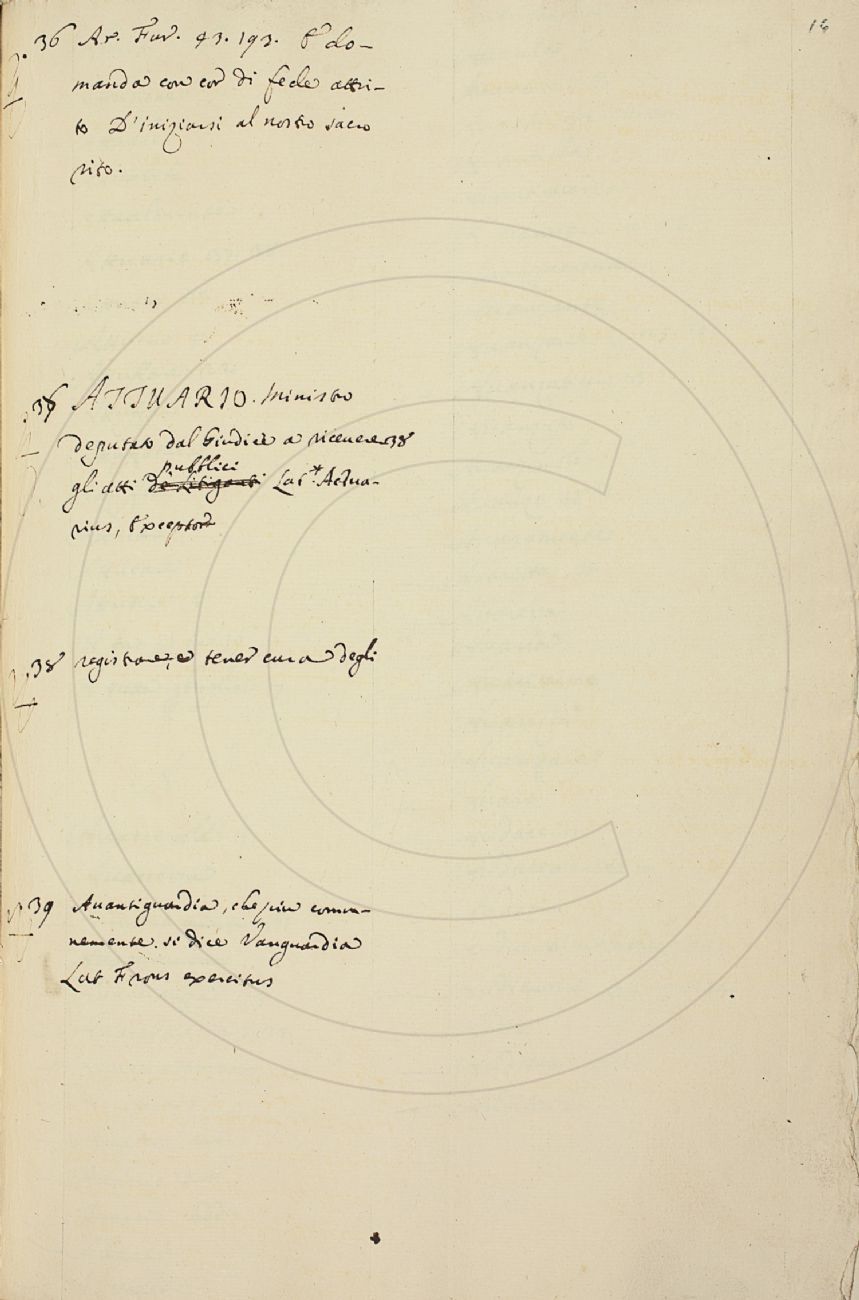 15
36 Ar. Fur. 43. 193. E do-
manda con cor di fede attri-
to D'iniziarsi al nostro sacro
rito.
37 ATTUARIO. Ministro
deputato dal Giudice a riceuere 38
pubblici
gli atti de Litiganti Lat.* Actua-
rius, Exceptor
38 registrare, e tener cura degli
39 Auantiguardia, che piu comu-
nemente si dice Vanguardia
Lat Frons exercitus